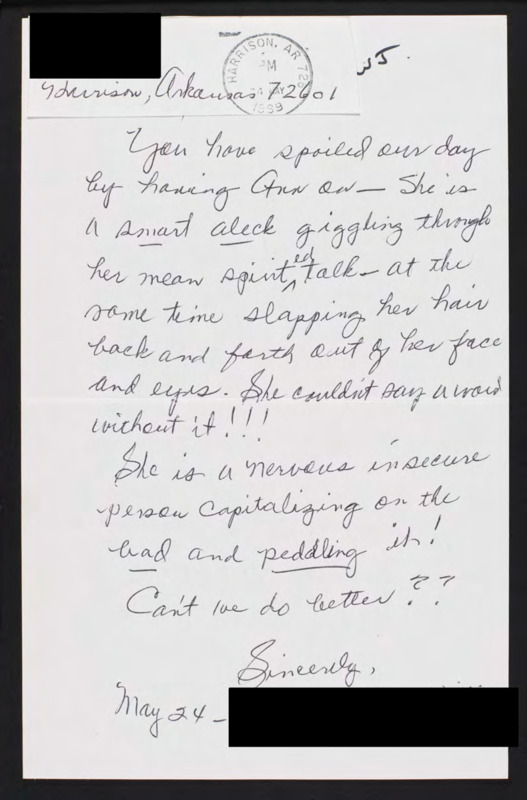 HARRISON, AR 726
PM
24 MAY
1999
WJ.
Harrison, Arkansas 72601
You have spoiled our day
by having Ann on — She is
a smart aleck giggling through
her mean spirited talk — at the
same time slapping her hair
back and forth out of her face
and eyes. She couldn't say a word
without it!!!
She is a nervous insecure
person capitalizing on the
bad and peddling it!
Can't we do better??
Sincerely,
May 24 —